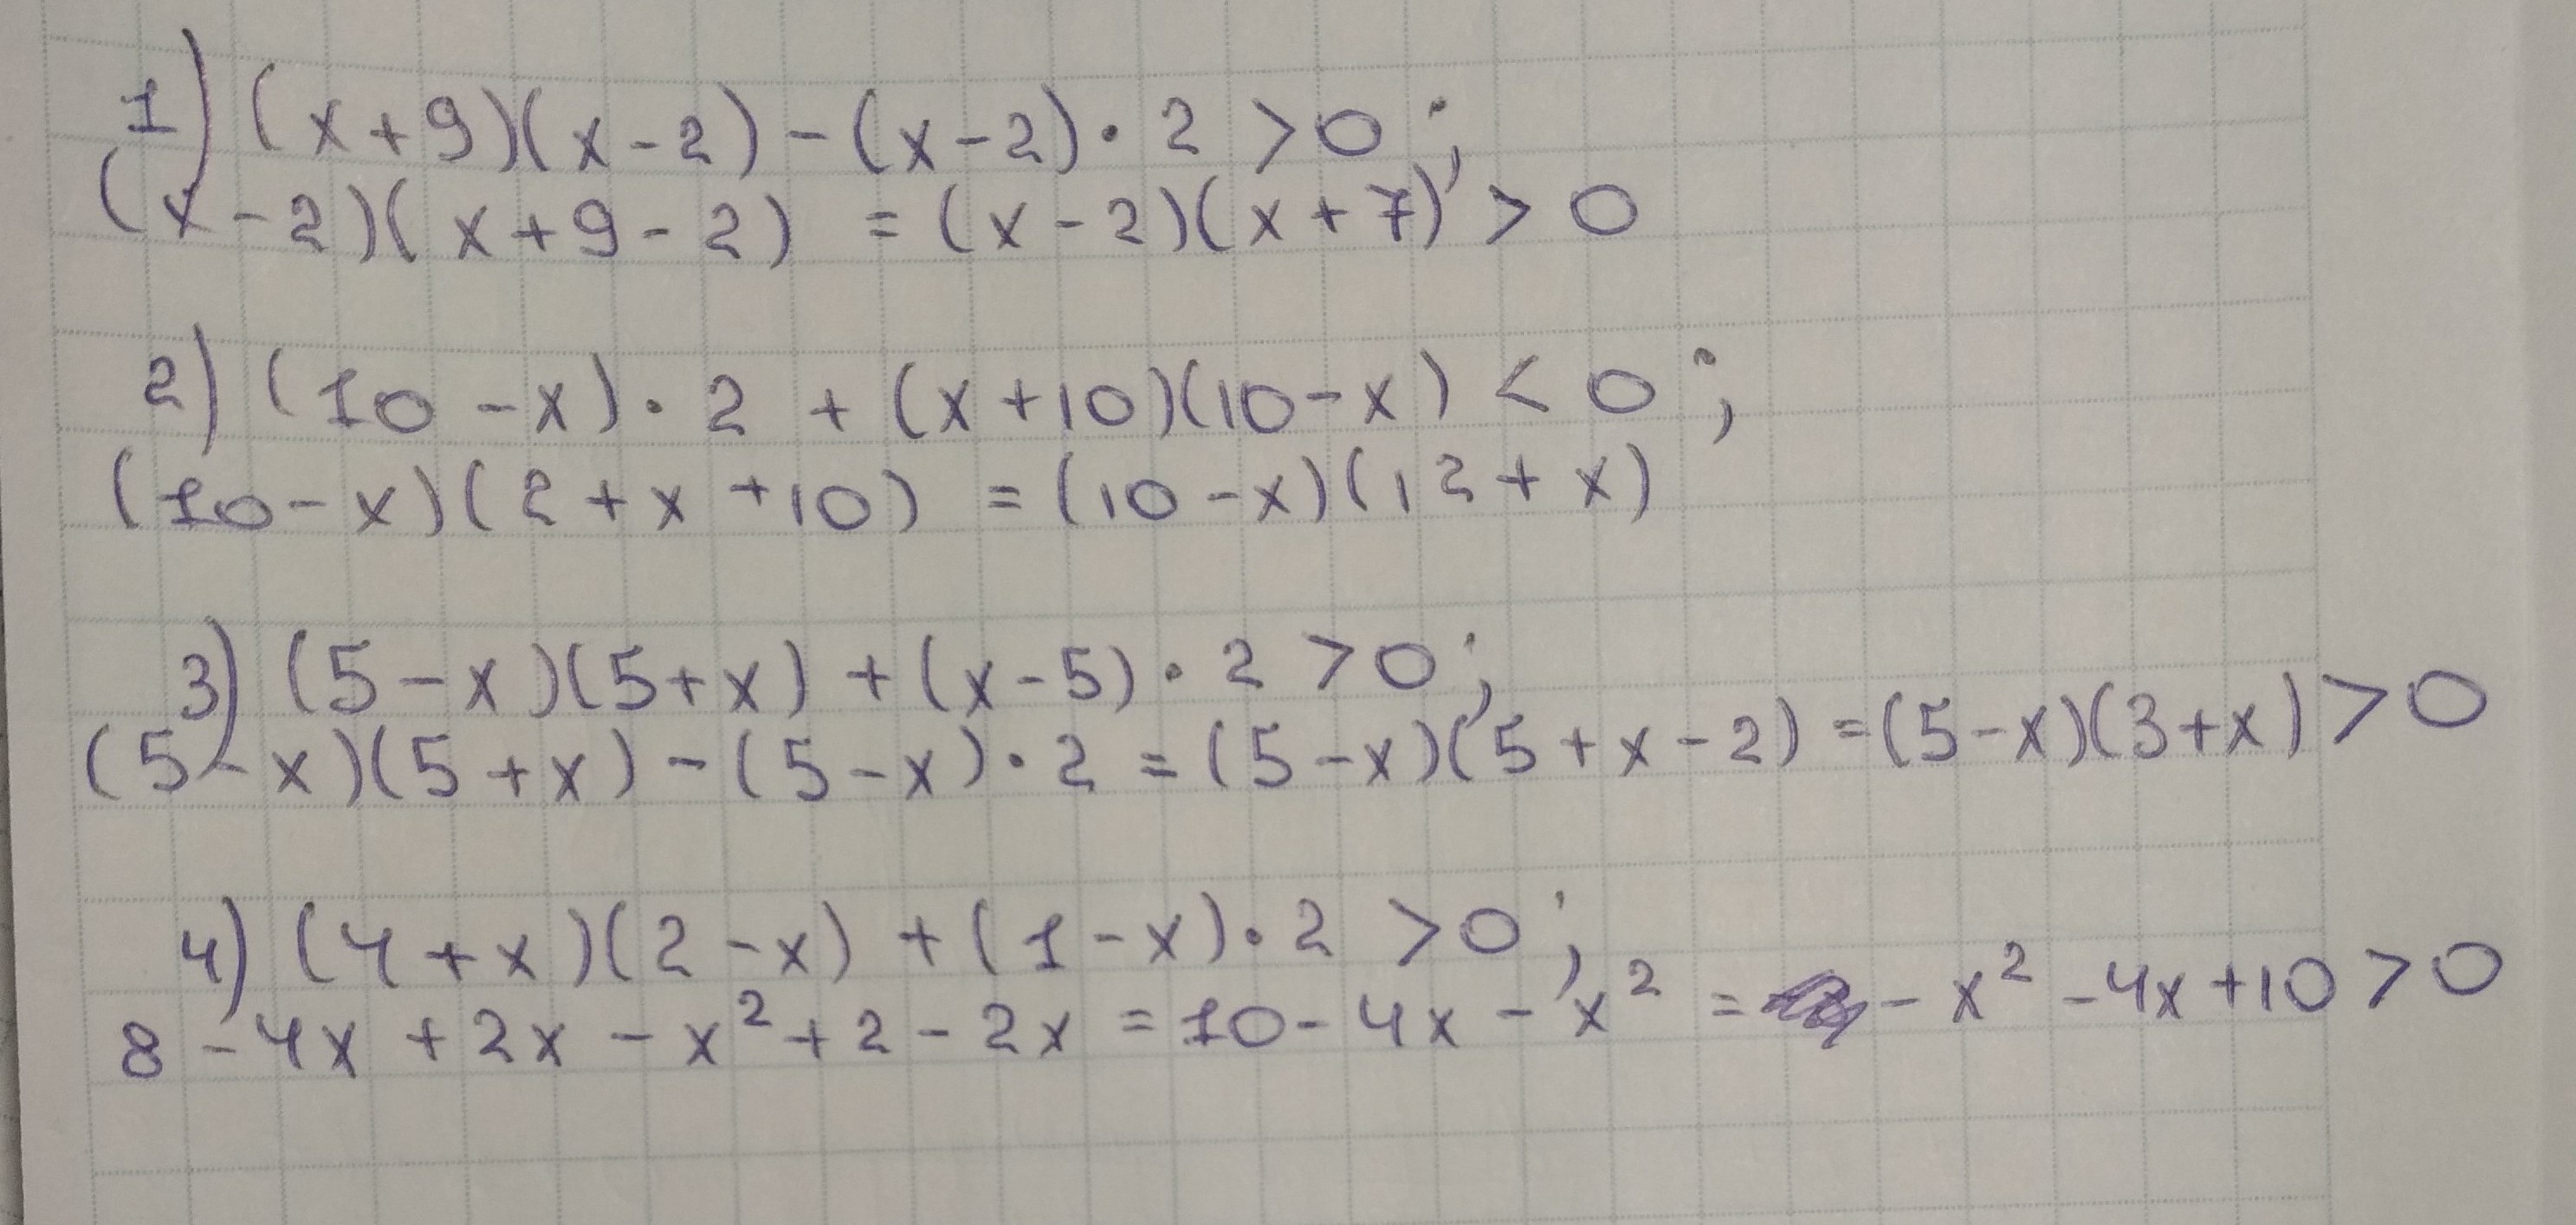 1) (x+9)(x-2) - (x-2)·2 > 0;
(x-2)(x+9-2) = (x-2)(x+7) > 0
2) (10-x)·2 + (x+10)(10-x) < 0;
(10-x)(2+x+10) = (10-x)(12+x)
3) (5-x)(5+x) + (x-5)·2 > 0;
(5-x)(5+x) - (5-x)·2 = (5-x)(5+x-2) = (5-x)(3+x) > 0
4) (4+x)(2-x) + (1-x)·2 > 0;
8 - 4x + 2x - x² + 2 - 2x = 10 - 4x - x² = - x² - 4x + 10 > 0